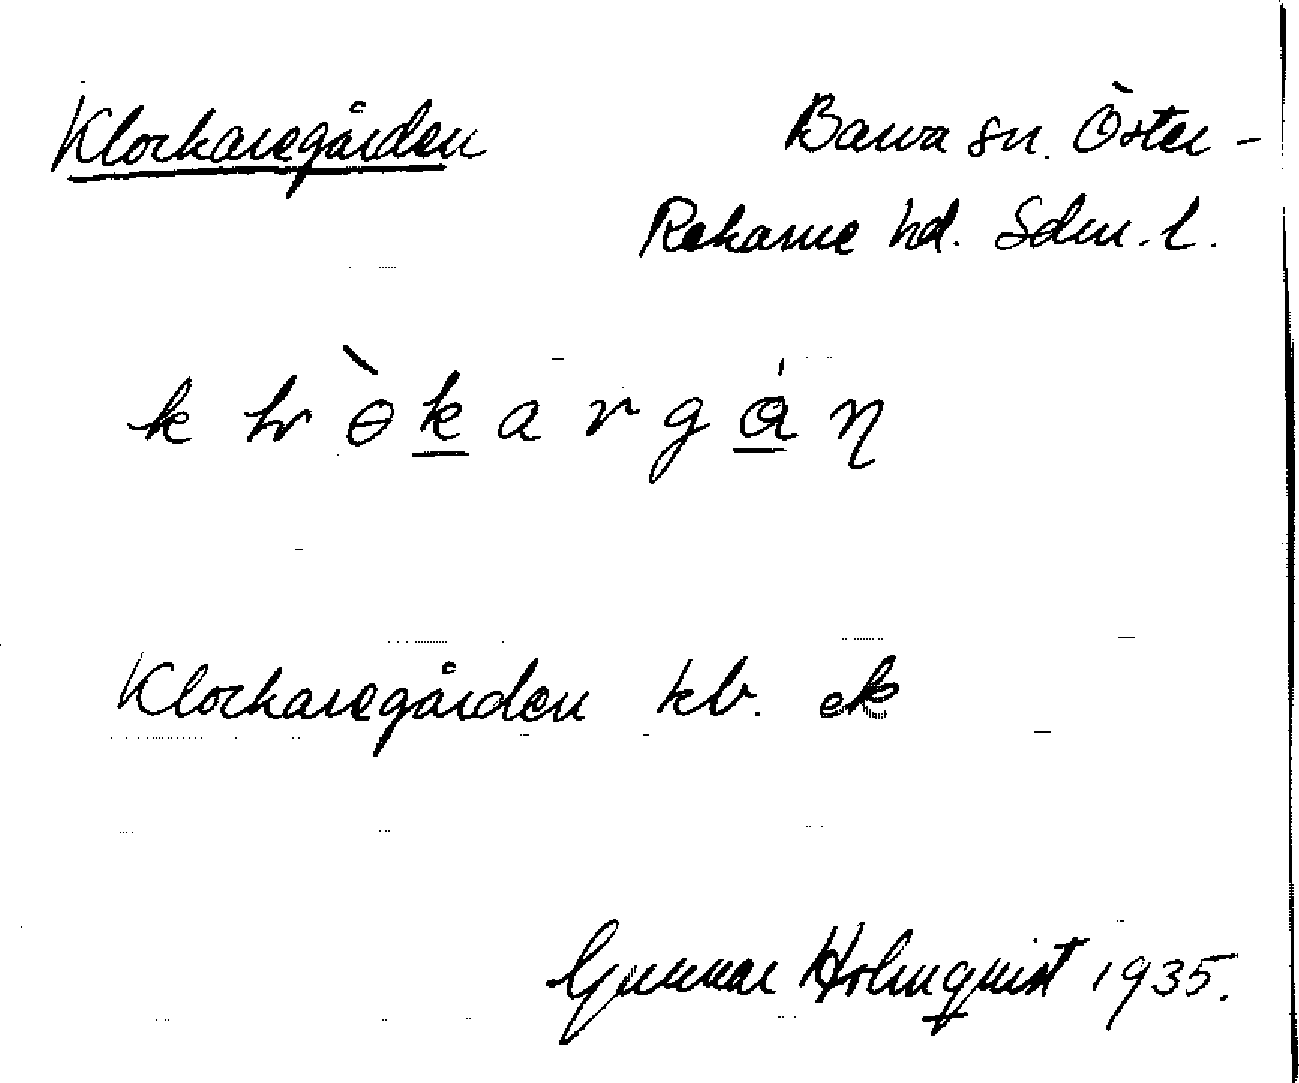 Klockaregården
Barva sn. Öster-
Rekarne hd. Sdm. l.
Klockaregården kb. ek
Gunnar Holmquist 1935.